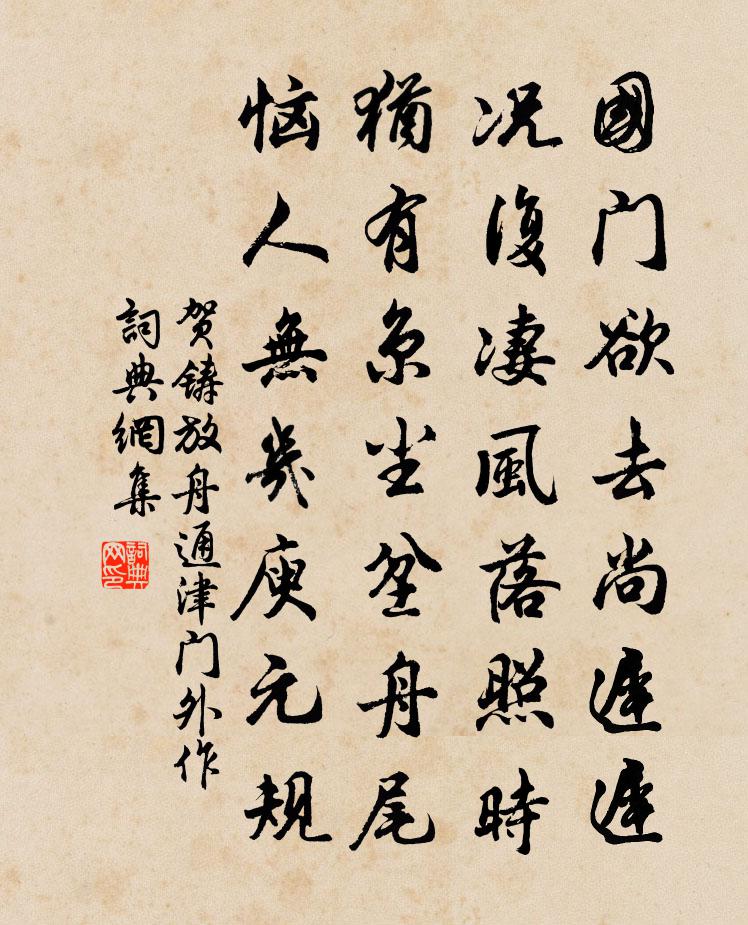 國门欲去尚遲遲
况復凄風落照時
猶有京尘坌舟尾
恼人無幾庾元規
贺鋳放舟通津门外作
詞典網集
詞典网印